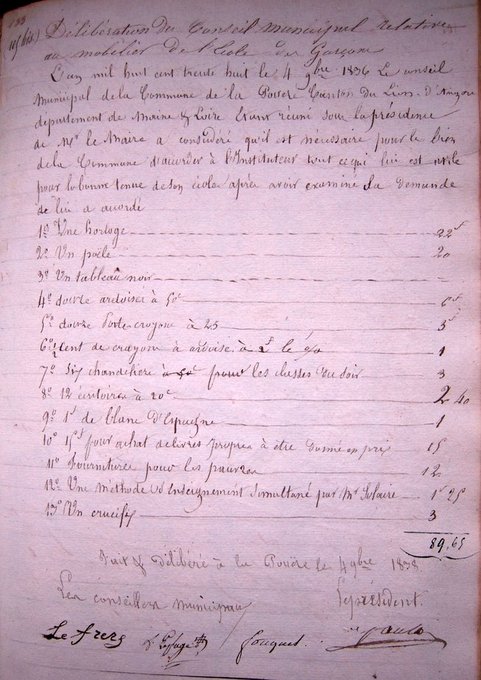 Délibération du Conseil municipal relative
au mobilier de l'Ecole des Garçons
L'an mil huit cent trente huit le 4 9bre 1836 Le conseil
Municipal de la Commune de la Pouëze Canton du Lion d'Angers
departement de Maine & Loire Etant réuni sous la présidence
de Mr le Maire a considéré qu'il est nécessaire pour le bien
de la Commune d'accorder à l'Instituteur tout ce qui lui est utile
pour la bonne tenue de son école après avoir examiné sa demande
de lui a accordé
1º Une horloge 22f
2º Un poêle 20
3º Un tableau noir -
4º douze ardoises à 50c 6f
5º douze porte crayons à 25 3f
6º cent de crayons à ardoise à le % 1
7º Six chandeliers à 50c pour les classes du soir 3
8º 12 écritoires à 20c 2 40
9º 1f de blanc d'Espagne 1
10º 15f pour achat de livres propres à être donnés en prix 15
11º Fournitures pour les pauvres 12
12º Une méthode d'enseignement simultané par Mr 1f 25
13º Un crucifix 3
89.65
Fait & Délibéré à la Pouëze le 4 9bre 1838
Les conseillers municipaux Le président
Le Frers Fouquet